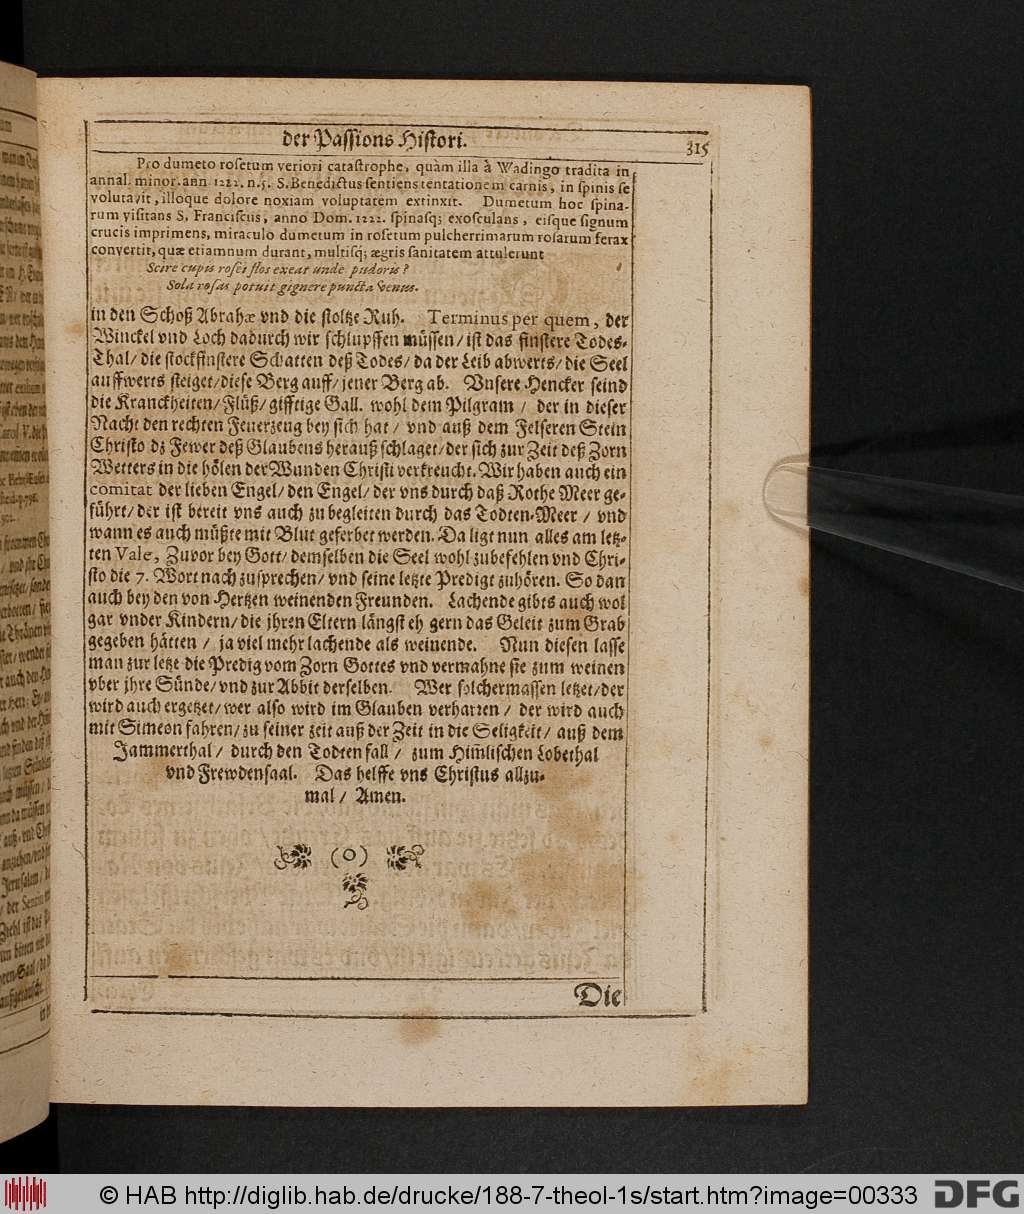 der Passions Histori.
315
Pro dumeto rosetum veriori catastrophe, quàm illa à Wadingo tradita in
annal. minor. ann 1222. n.5. S. Benedictus sentiens tentationem carnis, in spinis se
volutavit, illoque dolore noxiam voluptatem extinxit. Dumetum hoc spina-
rum visitans S. Franciscus, anno Dom. 1222. spinasq; exosculans, eisque signum
crucis imprimens, miraculo dumetum in rosetum pulcherrimarum rosarum ferax
convertit, quæ etiamnum durant, multisq; ægris sanitatem attulerunt
Scire cupis rosei flos exeat unde pudoris?
Sola rosas potuit gignere puncta Venus.
in den Schoß Abrahæ vnd die stoltze Ruh. Terminus per quem, der
Winckel vnd Loch dadurch wir schlupffen müssen/ ist das finstere Todes-
Thal/ die stockfinstere Schatten deß Todes/ da der Leib abwerts/ die Seel
auffwerts steiget/ diese Berg auff/ jener Berg ab. Vnsere Hencker seind
die Kranckheiten/ Flüß/ gifftige Gall. wohl dem Pilgram / der in dieser
Nacht den rechten Feuerzeug bey sich hat / vnd auß dem Felseren Stein
Christo dz Fewer deß Glaubens herauß schlaget/ der sich zur Zeit deß Zorn
Wetters in die hölen der Wunden Christi verkreucht. Wir haben auch ein
comitat der lieben Engel/ den Engel/ der vns durch daß Rothe Meer ge-
führt/ der ist bereit vns auch zu begleiten durch das Todten-Meer / vnd
wann es auch müßte mit Blut geferbet werden. Da ligt nun alles am letz-
ten Vale, Zuvor bey Gott/ demselben die Seel wohl zubefehlen vnd Chri-
sto die 7. Wort nach zusprechen/ vnd seine letzte Predigt zuhören. So dan
auch bey den von Hertzen weinenden Freunden. Lachende gibts auch wol
gar vnder Kindern/ die jhren Eltern längst eh gern das Geleit zum Grab
gegeben hätten / ja viel mehr lachende als weinende. Nun diesen lasse
man zur letze die Predig vom Zorn Gottes vnd vermahne sie zum weinen
vber jhre Sünde/ vnd zur Abbit derselben. Wer solchermassen letzet/ der
wird auch ergetzet/ wer also wird im Glauben verharren / der wird auch
mit Simeon fahren/ zu seiner zeit auß der Zeit in die Seligkeit/ auß dem
Jammerthal / durch den Todten fall / zum Him̃lischen Lobethal
vnd Frewdensaal. Das helffe vns Christus allzu-
mal / Amen.
(o)
Die
© HAB http://diglib.hab.de/drucke/188-7-theol-1s/start.htm?image=00333
DFG